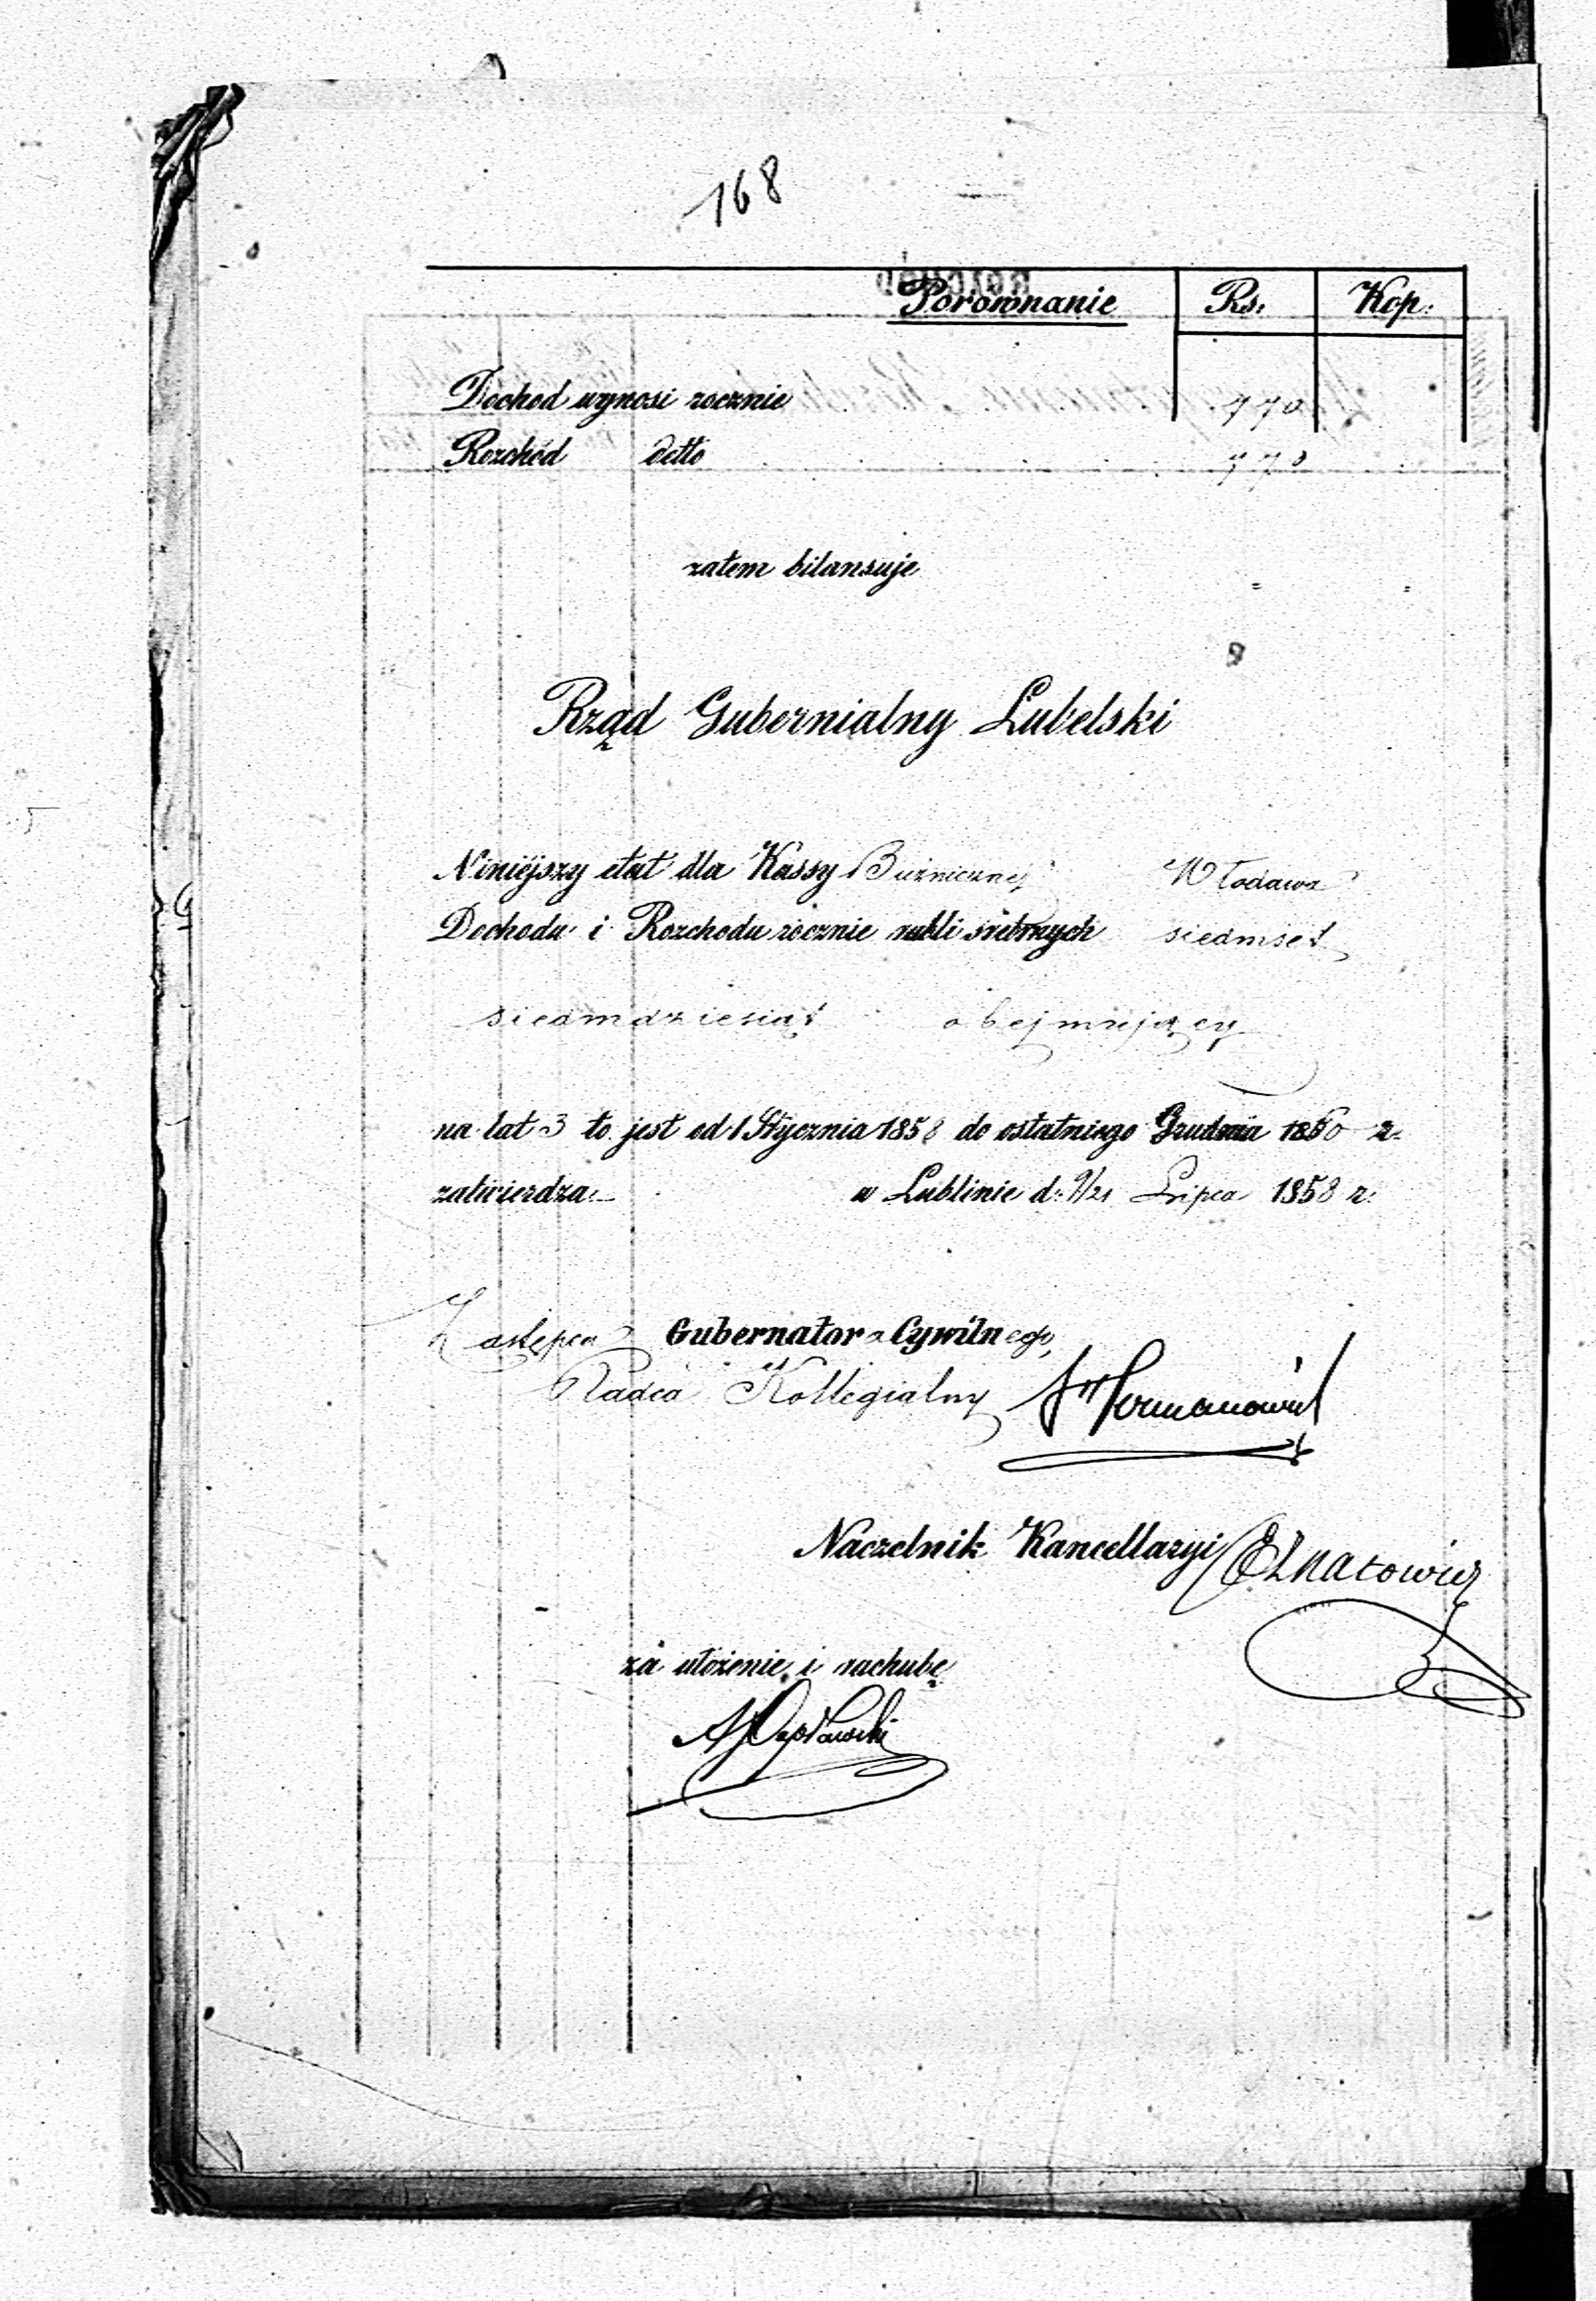 168
Porównanie Rs: Kop:
Dochod wynosi rocznie 770
Rozchód detto 770
zatem bilansuje = =
Rząd Gubernialny Lubelski
Niniejszy etat dla Kassy Bużniczney Włodawa
Dochodu i Rozchodu rocznie rubli srebrnych siedmset
siedmdziesiąt obejmujący
na lat 3 to jest od 1 Stycznia 1858 do ostatniego Grudnia 1860 r.
zatwierdza. w Lublinie d. 9/21 Lipca 1858 r.
Zastępca Gubernatora Cywilnego,
Radca Kollegialny
Naczelnik Kancellaryi
za ułożenie i rachubę